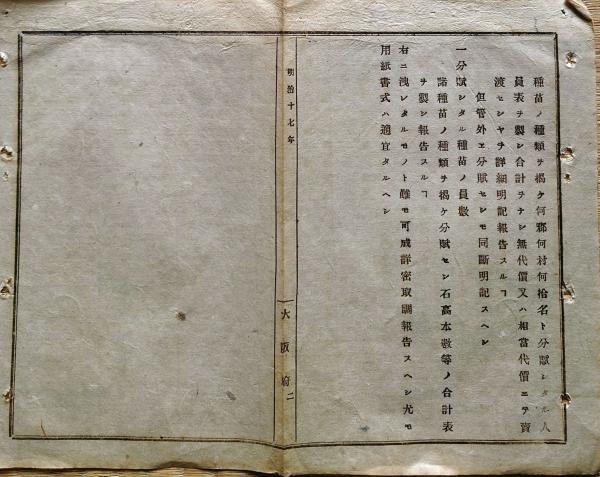 種苗ノ種類ヲ掲ケ何郡何村何拾名ト分賦シタル人
員表ヲ製シ合計ヲナシ無代價又ハ相當代價ニテ賣
渡セシヤヲ詳細明記報告スルヿ
但管外ヱ分賦セシモ同斷明記スヘシ
一分賦シタル種苗ノ員數
諸種苗ノ種類ヲ掲ケ分賦セシ石高本數等ノ合計表
ヲ製シ報告スルヿ
右ニ洩レタルモノト雖モ可成詳密取調報告スヘシ尤モ
用紙書式ハ適宜タルヘシ
明治十七年
大阪府二